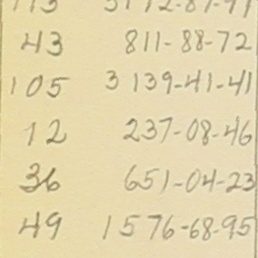 113 3172-87-91
43 811-88-72
105 3139-41-41
12 237-08-46
36 651-04-23
49 1576-68-95